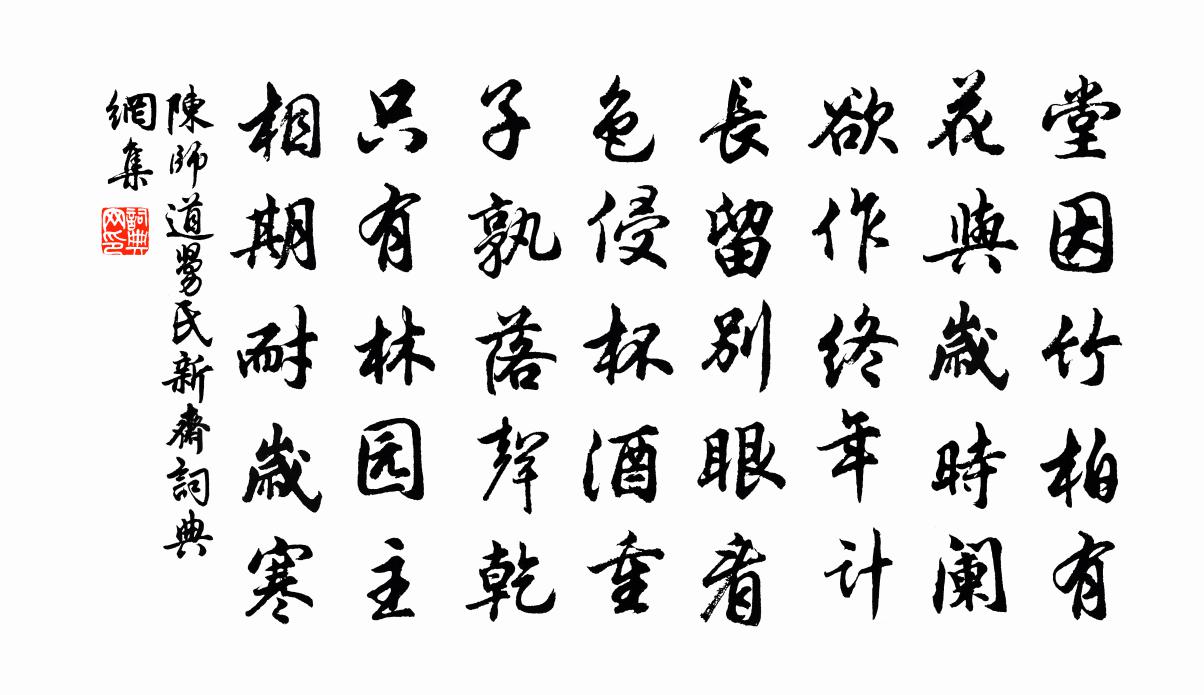 堂因竹柏有
花與歲時闌
欲作終年計
長留別眼看
色侵杯酒重
子孰落聲乾
只有林园主
相期耐歲寒
陳師道舅氏新齋詞典
網集
詞典
网印